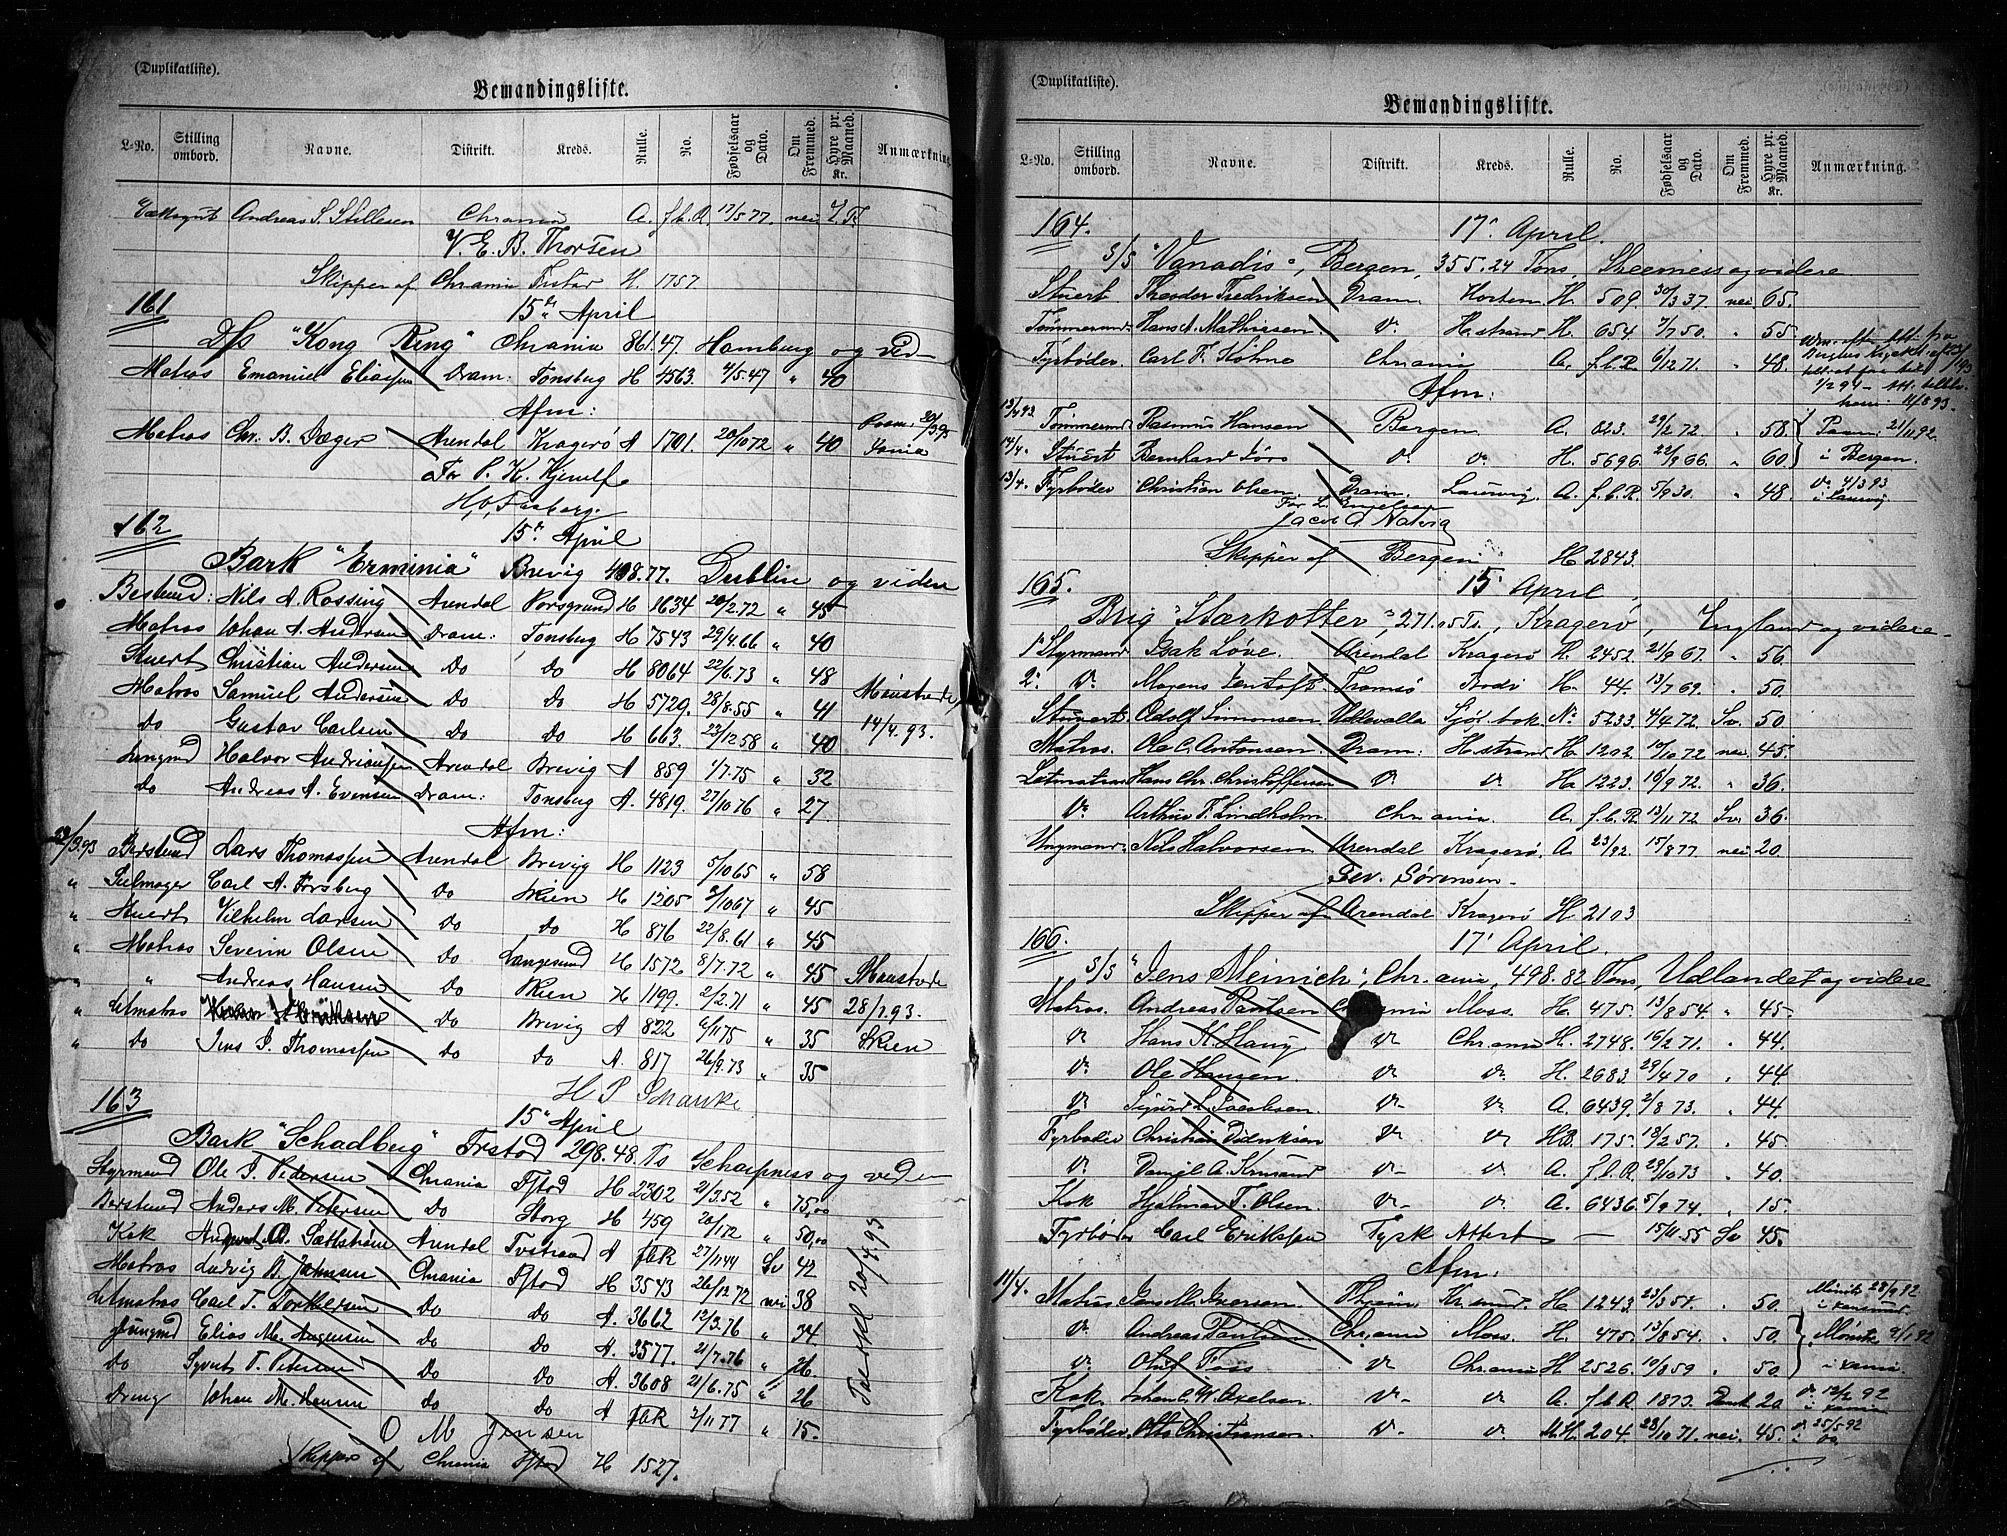 (Duplikatliste).
Bemandingsliste.
L-No. Stilling ombord. Navne. Distrikt. Kreds. Rulle. No. Fødselsaar og Dato. Om Fremmed. Hyre pr. Maaned. Kr. Anmærkning
Andreas S. Stillesen Chrania A. f.b.R. 17/5 77 nei
V. E. B. Thorsen
Skipper af Chrania Frstad H. 1757
161 15de April
D/s "Kong Ring" Chrania 861.47. Hamburg og vid-
Matros Emanuel Eliassen Dram: Tønsberg H 4563. 4/5.47 " 40
Afm:
Matros Chr. B. Dæger Arendal Kragerø A 1701. 20/10 72 " 40
For P. K. Kjerulf
162 15de April
Bark "Erminia" Brevig 408.77. Dublin og videre
Bestmd: Nils A. Rossing Arendal Porsgrund H 1634 20/2.72 " 45
Matros Johan A. Andersen Dram: Tønsberg H 7543 29/4.66 " 40
Stuert Christian Andersen Do Do H 8064 22/6.73 " 48
Matros Samuel Andersen Do Do H 5729. 28/8.55 " 41 Mønstrede
Do Gustav Carlsen Do Do H 663. 23/12 58 " 40 14/4.93.
Jungmd Halvor Andriansen Arendal Brevig A 859 1/7.75 " 32
Do Andreas A. Evensen Dram: Tønsberg A. 4819. 27/10 76 " 27
Afm:
29/3.93 Bestmd Lars Thomassen Arendal Brevig H 1123 5/10 65 " 58
" Seilmager Carl A. Forsberg Do Skien H 1205 9/10 67 " 45
" Stuert Vilhelm Larsen Do Do H 876 22/8.61 " 45
" Matros Severin Olsen Do Langesund H 1572 8/7.72 " 45 Mønstrede
" " Andreas Hansen Do Skien H 1199. 2/2.71 " 45 28/1.93.
" Letmatros Eriksen Do Brevig A 822 6/11 75 " 35 Skien
" Do Jens P. Thomassen Do Do A. 817 26/9.73 " 35
H P Schanke
163 15de April
Bark "Schadberg" Frstad 298.48. Ts Scherpness og videre
Styrmand Ole P. Pedersen Chrania Fstad H 2302 2/3.52 " 75,00
Bestmd Anders M. Petersen Do Storg H 459 20/1 72 " 50,00
Kok August A. Sættstrøm Arendal Tvstrand A fbR 27/11 44 Sv 42
Matros Ludvig B. Johnsen Chrania Fstad H 3543 26/12.72 nei 38
Letmatros Carl T. Torkelsen Do Do A. 3662 12/3.76 " 34
Jungmd Elias M. Augensen Do Do A. 3577. 21/7.76 " 26.
Do Syvert T. Petersen Do Do A. 3608 21/6.75 " 26
Dreng Johan M. Hansen Do Do A fbR 7/11 77 " 15.
O M Jensen
Skipper af Chrania Fstad H 1527.
(Duplikatliste).
Bemandingsliste.
L-No. Stilling ombord. Navne. Distrikt. Kreds. Rulle. No. Fødselsaar og Dato. Om Fremmed. Hyre pr. Maaned. Kr. Anmærkning.
164. 17' April.
S/S "Vanadis", Bergen, 355.24 Tons, Skeerness og videre
Stuert Theodor Fredriksen Dram. Horten H. 509. 30/3 37. nei 65.
Tømmermd. Hans A. Mathiesen Do Hstrand H. 654. 7/7 50. " 55.
Fyrbøder. Carl F. Kohne Chrania A. f.b.R. 6/12 71. " 48.
Afm:
13/4 93. Tømmermd Rasmus Hansen Bergen A. 823. 29/2 72 " 58. Paam: 21/11 92.
14/4. Stuert Bernhard Do Do H. 5696. 22/9 66. " 60. i Bergen.
13/4. Fyrbøder Christian Olsen. Dram. Laurvig. A. f.b.R. 5/9 30. " 48. Do 4/3 93 i Laurvig
For L. Engelsen
Jacob A. Natvig
Skipper af Bergen H 2843.
165. 15' April
Brig "Stærkotter," 271.05 Ts., Kragerø, England og videre
1' Styrmand Isak Løve. Arendal Kragerø H. 2452. 21/9 67. " 56.
2' Do Mogens Tromsø Bodø H. 44. 13/7 69. " 50.
Stuert. Adolf Simonsen Uddevalla No 5233. 4/4 72. Sv. 50
Matros. Ole C. Antonsen Dram: Hstrand H. 1202. 10/10 72 nei 45.
Letmatros Hans Chr. Christoffersen Do Do H. 1223. 16/9 72. " 36.
Do Arthur F. Lindholm Chrania. A. f.b.R. 13/11 72 Sv. 36.
Ungmand. Nils Halvorsen Arendal Kragerø. A. 23/92. 15/8 77. nei 20.
Lev. Sørensen.
Skipper af Arendal Kragerø H 2103
166. 17' April.
S/S "Jens Meinich", Chr.ania, 498.82 Tons, Udlandet og videre
Matros. Andreas Paulsen Moss. H. 475. 13/8 54. " 45-
Do Hans K. Haug Do Chrania H. 2748. 16/2 71. " 44.
Do Ole Hansen. Do Do H. 2683. 29/4 70 " 44.
Do Sigurd L. Jacobsen. Do Do A. 6439. 2/8 73. " 44.
Fyrbøder Christian Didriksen Do Do HB. 175. 18/2 57. " 45.
Do Daniel A. Do Do A. f.b.R. 29/10 73 " 40.
Kok Hjalmar T. Olsen. Do Do A. 6436. 5/9 74. " 15.
Fyrbøder Carl Eriksen Tysk Attest — 15/11 55 Sv 45.
Afm:
11/4. Matros. Jens M. Iversen. Thjem Kr.sund. H. 1243. 23/3 54. " 50. Mønst 28/9 92 i Kr.sund.
Do Andreas Paulsen Chr.ania Moss. H. 475. 13/8 54. " 50. Mønst
Do Oluf Foss Do Chrania H 2526. 10/8 59 " 50.
Kok. Johan C. W. Axelsen. Do Do A. f.b.R. 1873. Dansk 20
Fyrbøder Otto Christiansen. Do Do M.H. 204. 23/10 71. nei. 45. Do 25/5 92